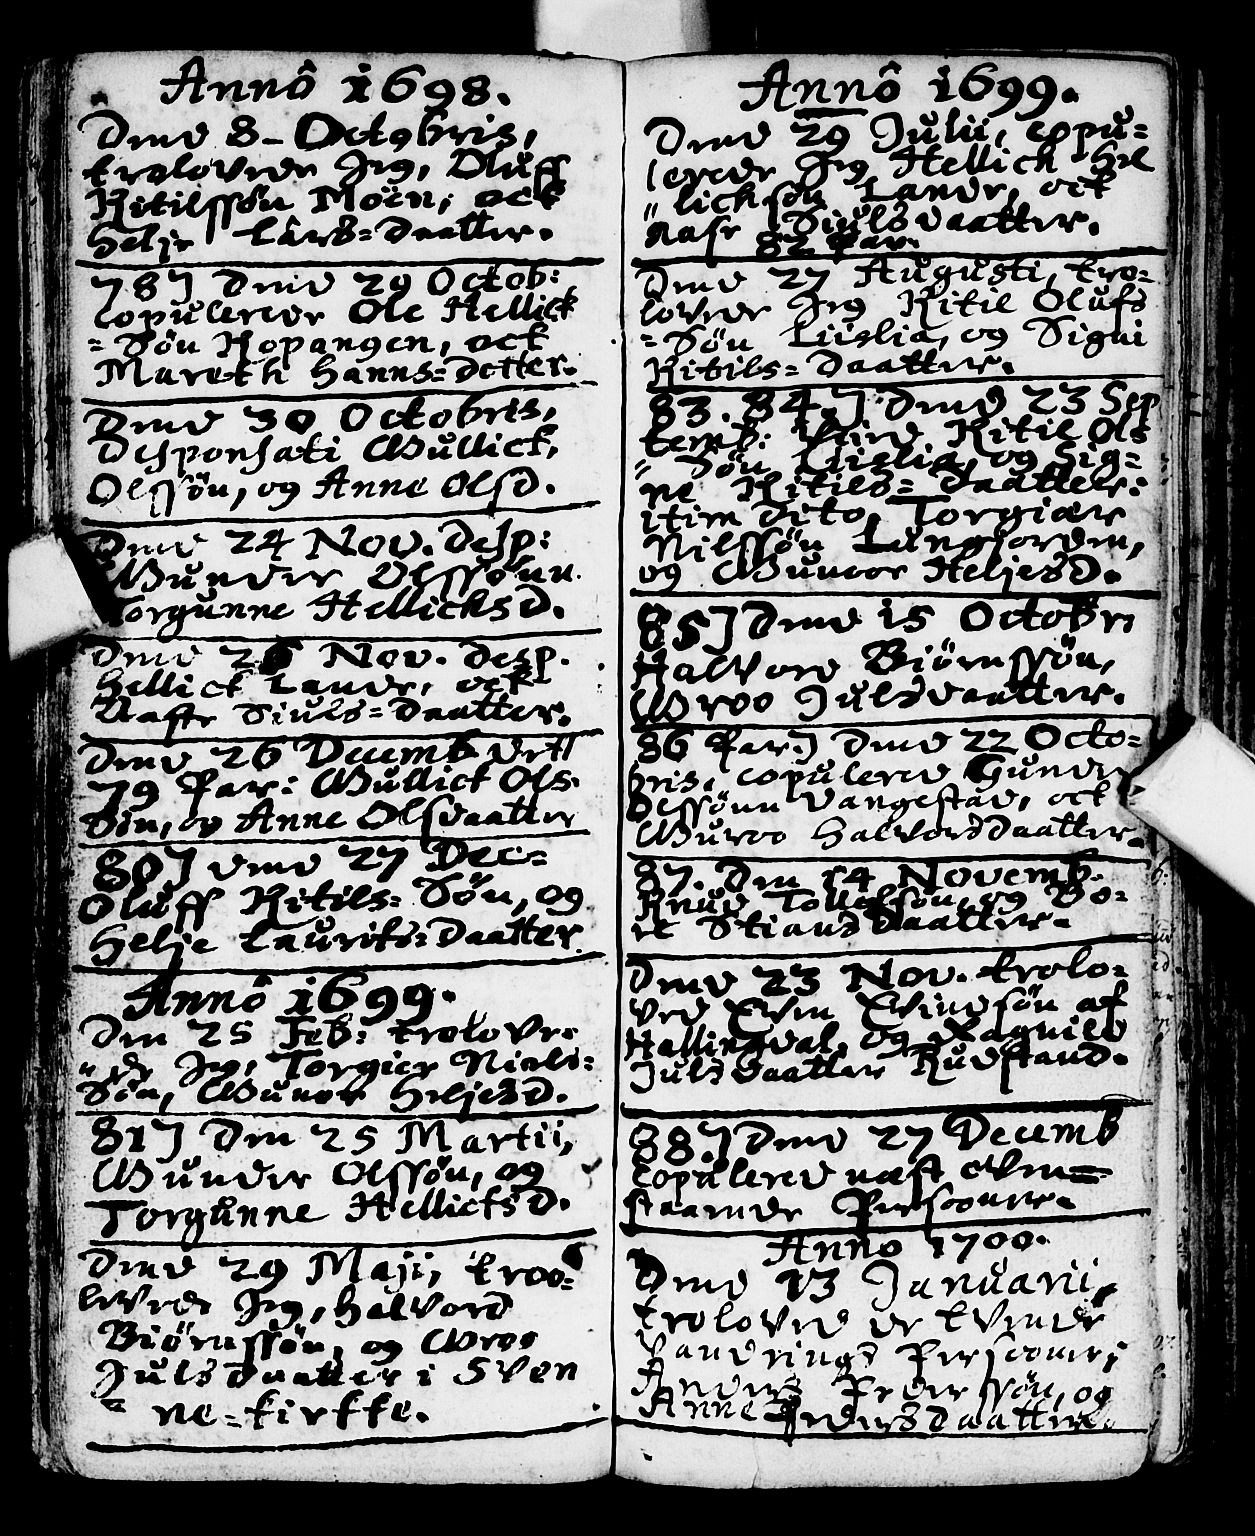 Annô 1698.
Dend 8 - Octobris,
trolovede Jeg, Oluff
Kitilssøn Moen, ock
Helje Lârs=Daatter.
78] Dend 29 Octob:
Copulerede Ole Hellick
=Søn Kopangen, ock
Mareth Hanns=Dotter.
Dend 30 Octobris,
Desponsati Gullick,
Olssøn, og Anne Olsd.
Dend 24 Nov. desp:
Gunder Olssønn
Torgunne Hellicksd.
Dend 26 Nov. desp.
Hellick Lande, ock
Aaste Siuls=Daatter.
Dend 26 Decemb
79 Par: Gullick Ols-
Søn, og Anne Olsdaatter
80] dend 27 Dec=
Oluff Kitils=Søn, og
Helje Laurits=Daatter.
Annô 1699.
Den 25 Feb: trolove=
=de Jeg, Torgier Niels=
Søn, Gunor Heljesd.
81] Den 25 Martii,
Gunder Olssøn, og
Torgunne Hellicksd.
Dend 29 Maji, troo=
levede Jeg, Halvord
Biørnssøn, og Groo
Julsdaatter i Sven
=ne=kirkke.
Annô 1699.
Dend 29 Julii, Copu=
lerede Jeg Hellich Hel
=lichsøn Lande, ock
Aase Siulsdaatter.
82 Par.
Dend 27 Augusti, tro=
lovede Jeg Kitil Olufs
=Søn Liislia, og Signi
Kitils=Daatter.
83. 84.] Dend 23 Sep
temb: Kitil Ols
=Søn Liislia, og Sig=
ne Kitils=Daatter:
item dito, Torgiær
Nilssøn Langjorden,
og Gunoor Heljesd.
85] Dend 15 Octobr:
Halvord Biørnssøn,
Groo Julsdaatter.
86 Par] Dend 22 Octo=
bris, copulered Gunder
Olssønn Vangestad, ock
Guroo Halvordsdaatter.
87. Den 14 Novemb.
Knud Tollefsøn, og Bo=
el Stiansdaatter.
Dend 23 Nov. trolo=
ved Even Evindsøn af
Hallingdal, og Ragnild
Julsdaatter Rudstand.
88.] Dend 27 Decemb
Copulered næst oven=
staaende Persooner.
Anno 1700.
Dend 13 Januarii,
troloved de tvende
vandrings Persooner,
Anders Pederssøn, og
Anne Pedersdaatter.